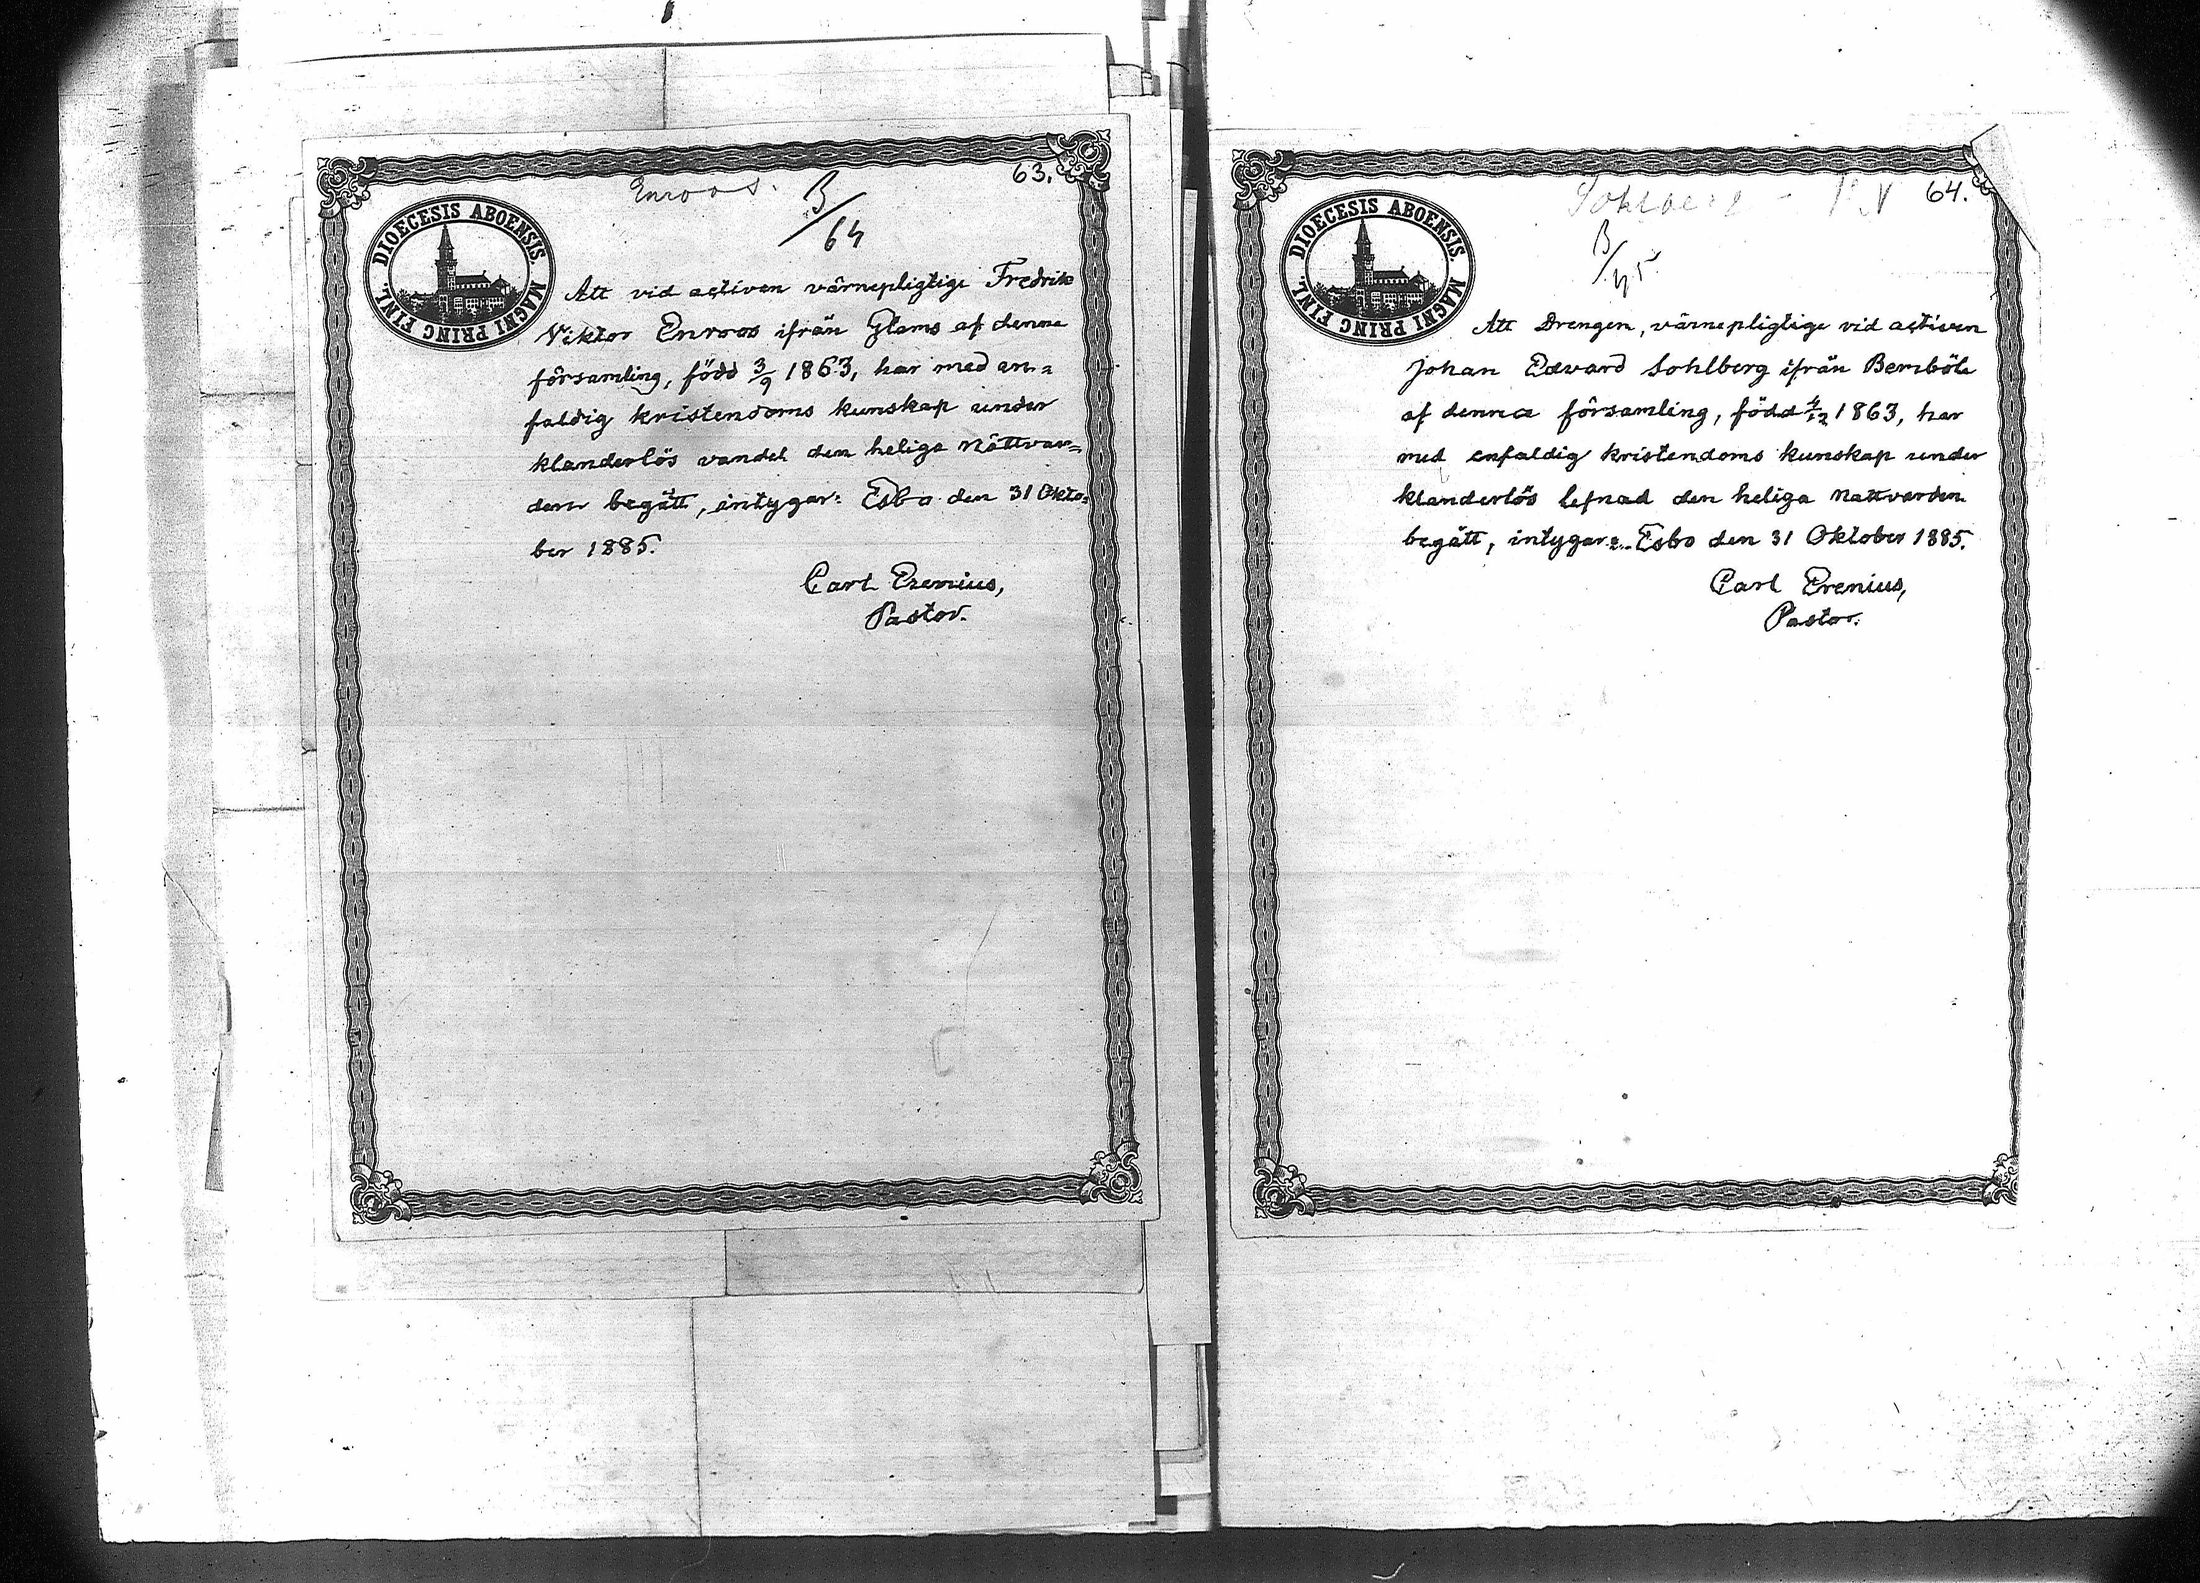 63.
Enroos.
B/64
DIOECESIS ABOENSIS. MAGNI PRINC FINL.
Att vid activen värnepligtige Fredrik
Viktor Enroos ifrån Glams af denna
församling, född 3/9 1863, har med en=
faldig kristendoms kunskap under
klanderlös vandel den heliga Nattvar=
den begått, intygar: Esbo den 31 Okto=
ber 1885.
Carl Erenius,
Pastor.
Sohlberg - 64.
B/45.
DIOECESIS ABOENSIS. MAGNI PRINC FINL.
Att Drengen, värnepligtige vid activen
Johan Edvard Sohlberg ifrån Bemböle
af denna församling, född 4/12 1863, har
med enfaldig kristendoms kunskap under
klanderlös lefnad den heliga Nattvarden
begått, intygar: Esbo den 31 Oktober 1885.
Carl Erenius,
Pastor.